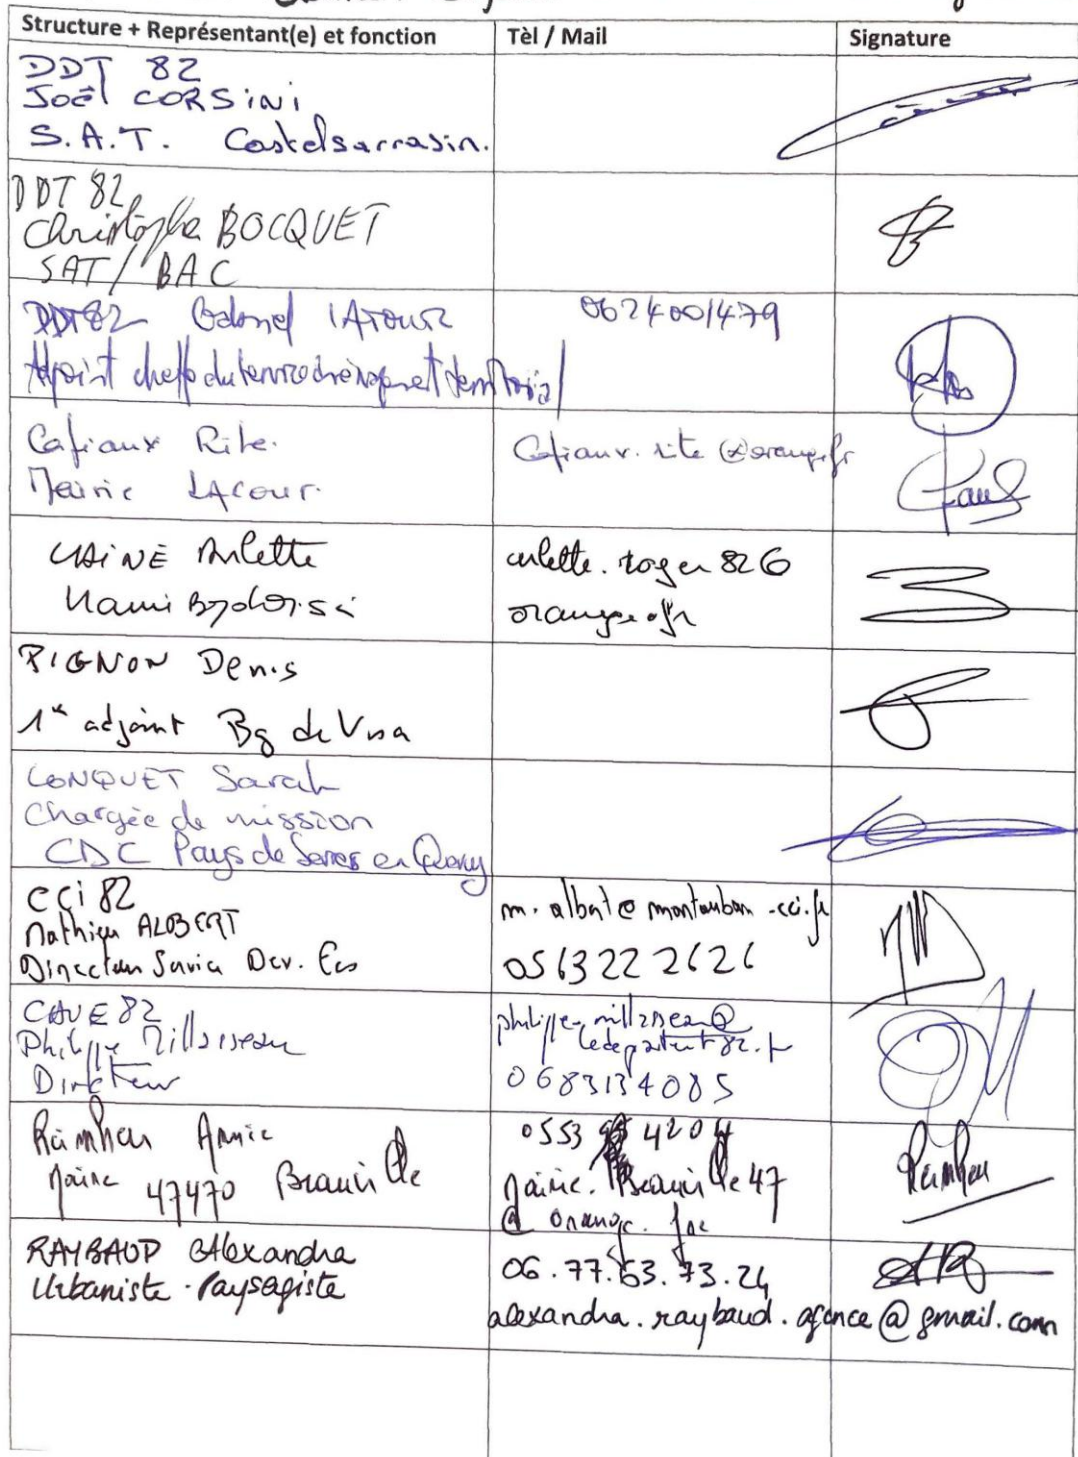 Structure + Représentant(e) et fonction
Tèl / Mail
Signature
DDT 82
Joël CORSINI
S.A.T. Castelsarrasin.
DDT 82
Christophe BOCQUET
SAT / BAC
DDT82 LATOUR
0624001479
Adjoint
Cafiaux Rite.
Mairie LACOUR.
Cafiaux.rite@orange.fr
Arlette
arlette.roger82@
orange.fr
PIGNON Denis
1er adjoint Bg de Visa
CONQUET Sarah
Chargée de mission
CDC Pays de Serres en Quercy
CCI 82
Mathieu ALBERT
Directeur Service Dev. Eco
m.albert@montauban.cci.fr
0563222626
CAUE 82
Philippe Millasseau
Directeur
philippe.millasseau@
ledepartement82.fr
0683134085
Annie
Mairie 47470 Beauville
0553 4204
Mairie.Beauville47
@orange.
RAYBAUD Alexandra
Urbaniste - Paysagiste
06.77.63.73.24
alexandra.raybaud.agence@gmail.com